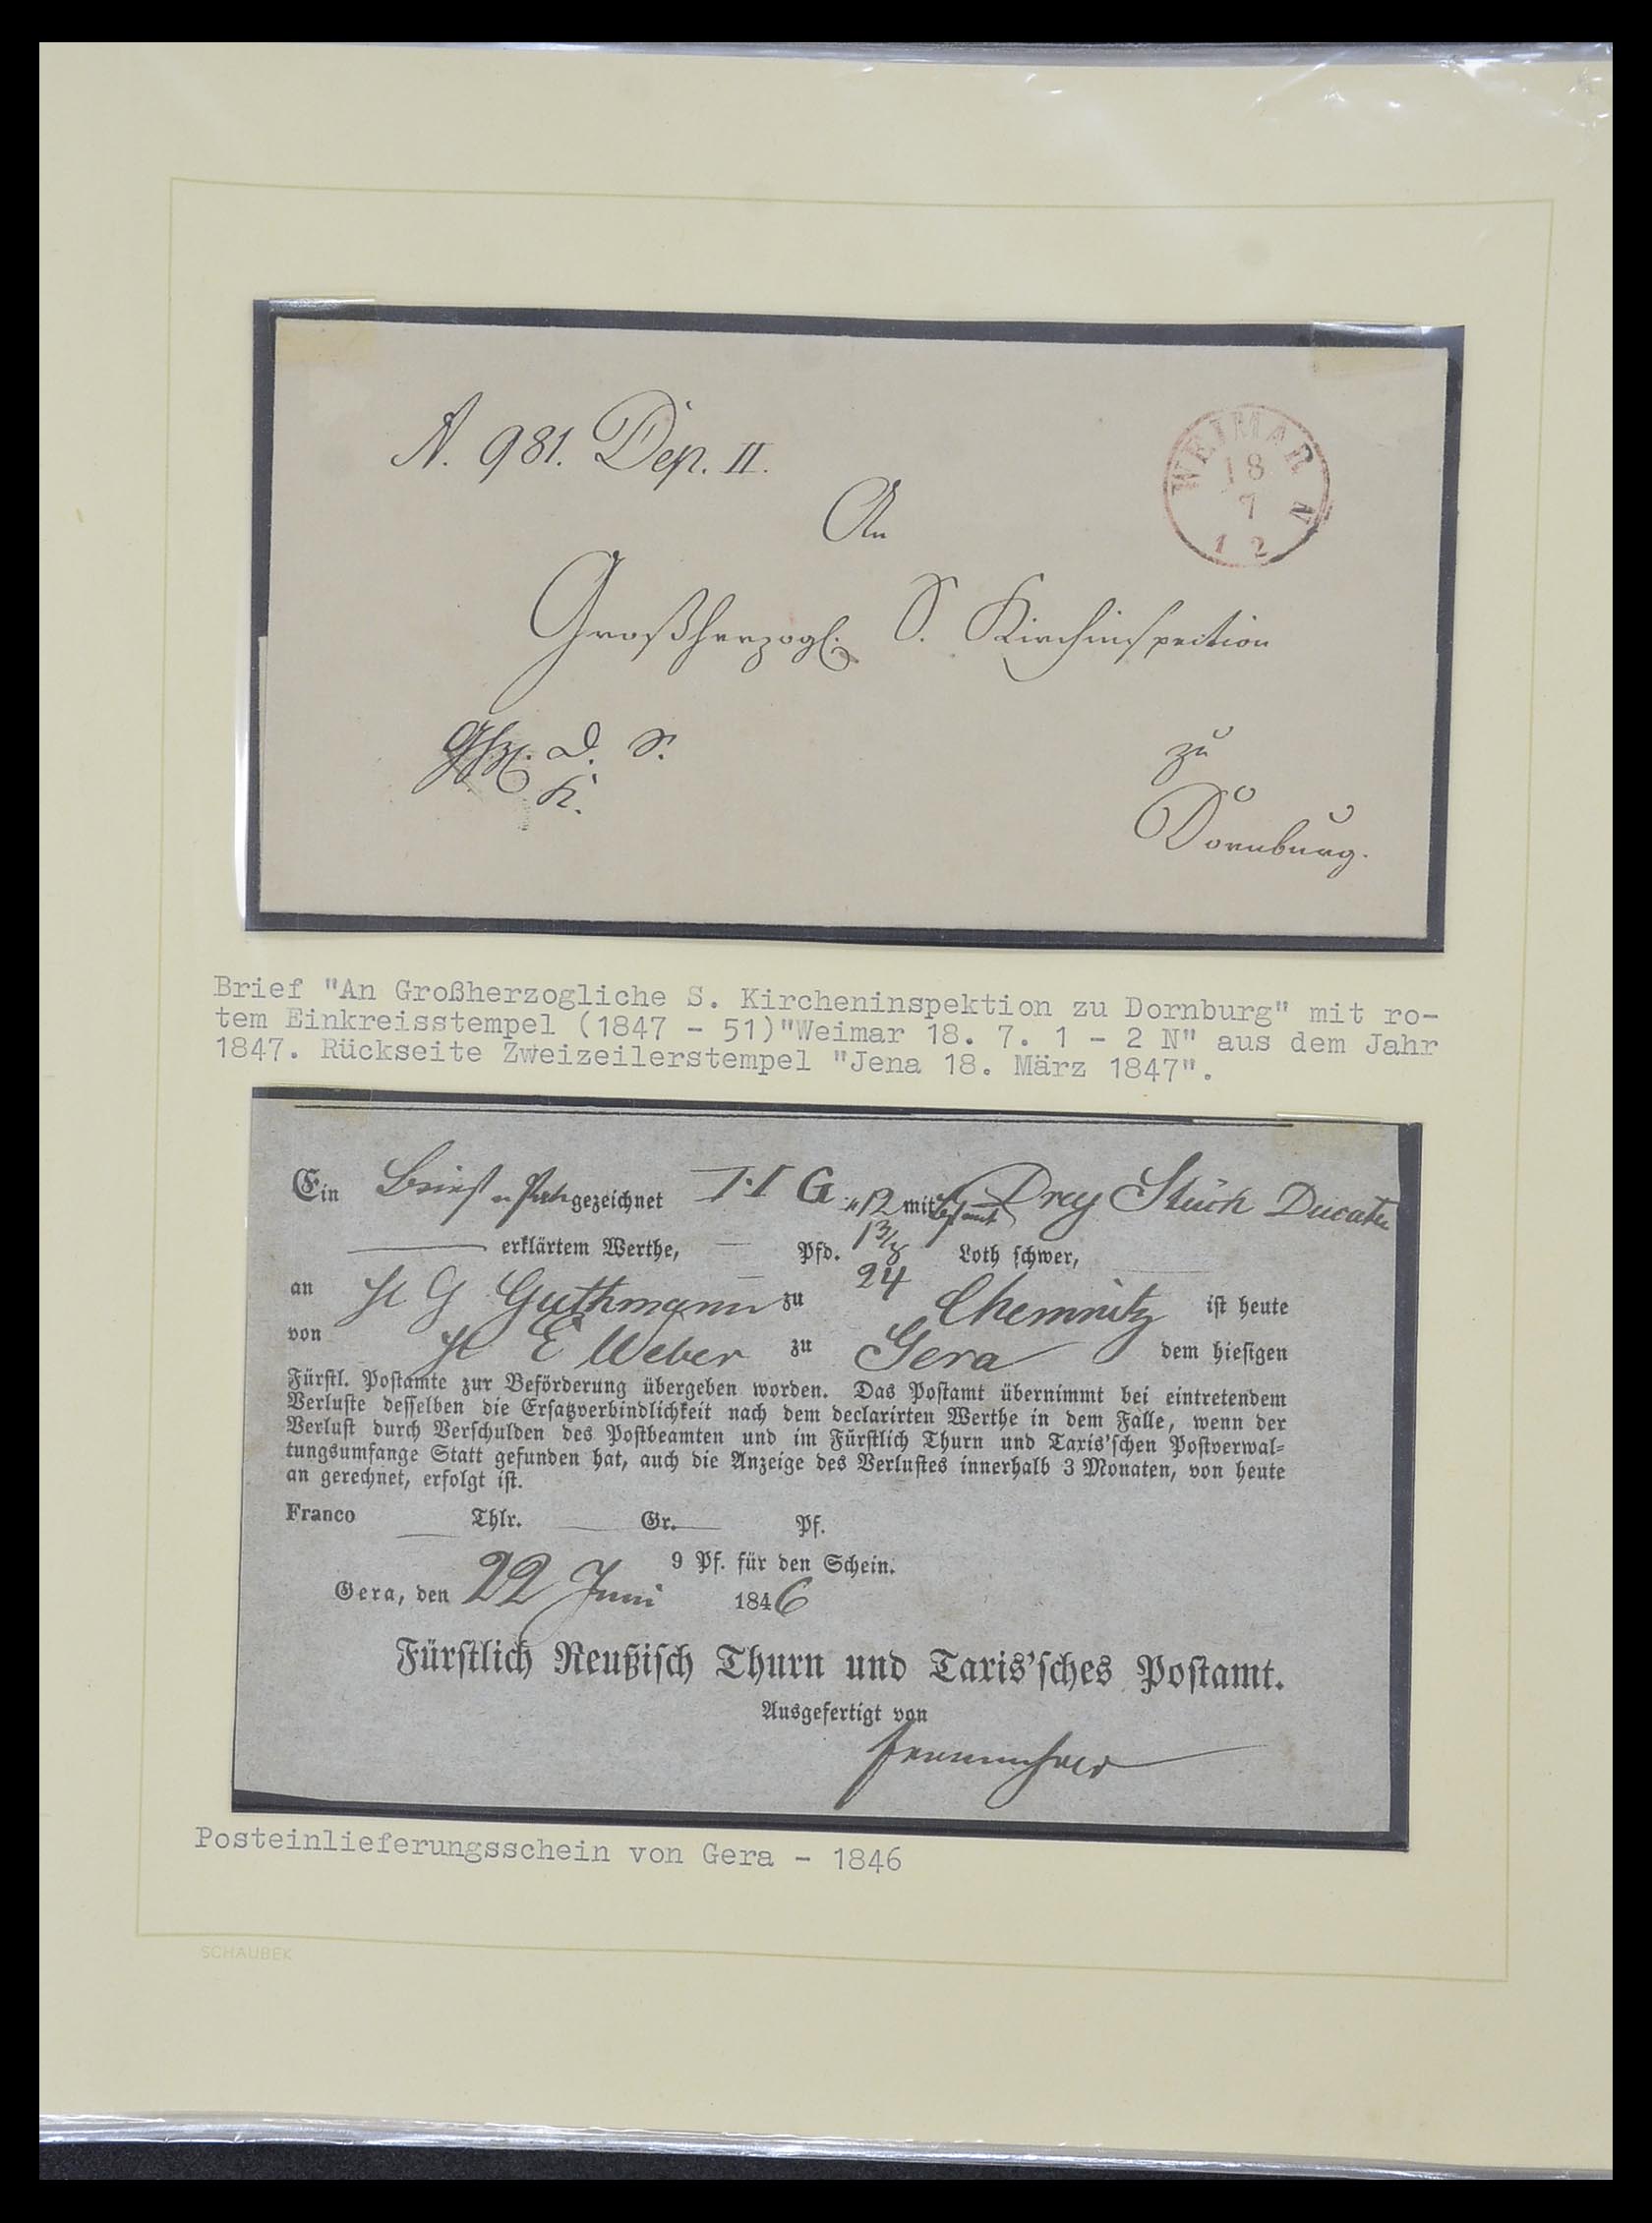 N. 981. Dep. II.
WEIMAR
18
7
1 2 N
An
Großherzogl. S. Kirchinspection
D. S.
K.
zu
Dornburg.
Brief "An Großherzogliche S. Kircheninspektion zu Dornburg" mit ro-
tem Einkreisstempel (1847 - 51)"Weimar 18. 7. 1 - 2 N" aus dem Jahr
1847. Rückseite Zweizeilerstempel "Jena 18. März 1847".
Ein Brief gezeichnet G mit Drey Stück Ducaten
erklärtem Werthe, Pfd. 1 3/8 Loth schwer,
24
an H G Guthmann zu Chemnitz ist heute
von H E Weber zu Gera dem hiesigen
Fürstl. Postamte zur Beförderung übergeben worden. Das Postamt übernimmt bei eintretendem
Verluste desselben die Ersatzverbindlichkeit nach dem declarirten Werthe in dem Falle, wenn der
Verlust durch Verschulden des Postbeamten und im Fürstlich Thurn und Taxis'schen Postverwal-
tungsumfange Statt gefunden hat, auch die Anzeige des Verlustes innerhalb 3 Monaten, von heute
an gerechnet, erfolgt ist.
Franco Thlr. Gr. Pf.
9 Pf. für den Schein.
Gera, den 22 Juni 1846
Fürstlich Reußisch Thurn und Taxis'sches Postamt.
Ausgefertigt von
Posteinlieferungsschein von Gera - 1846
SCHAUBEK